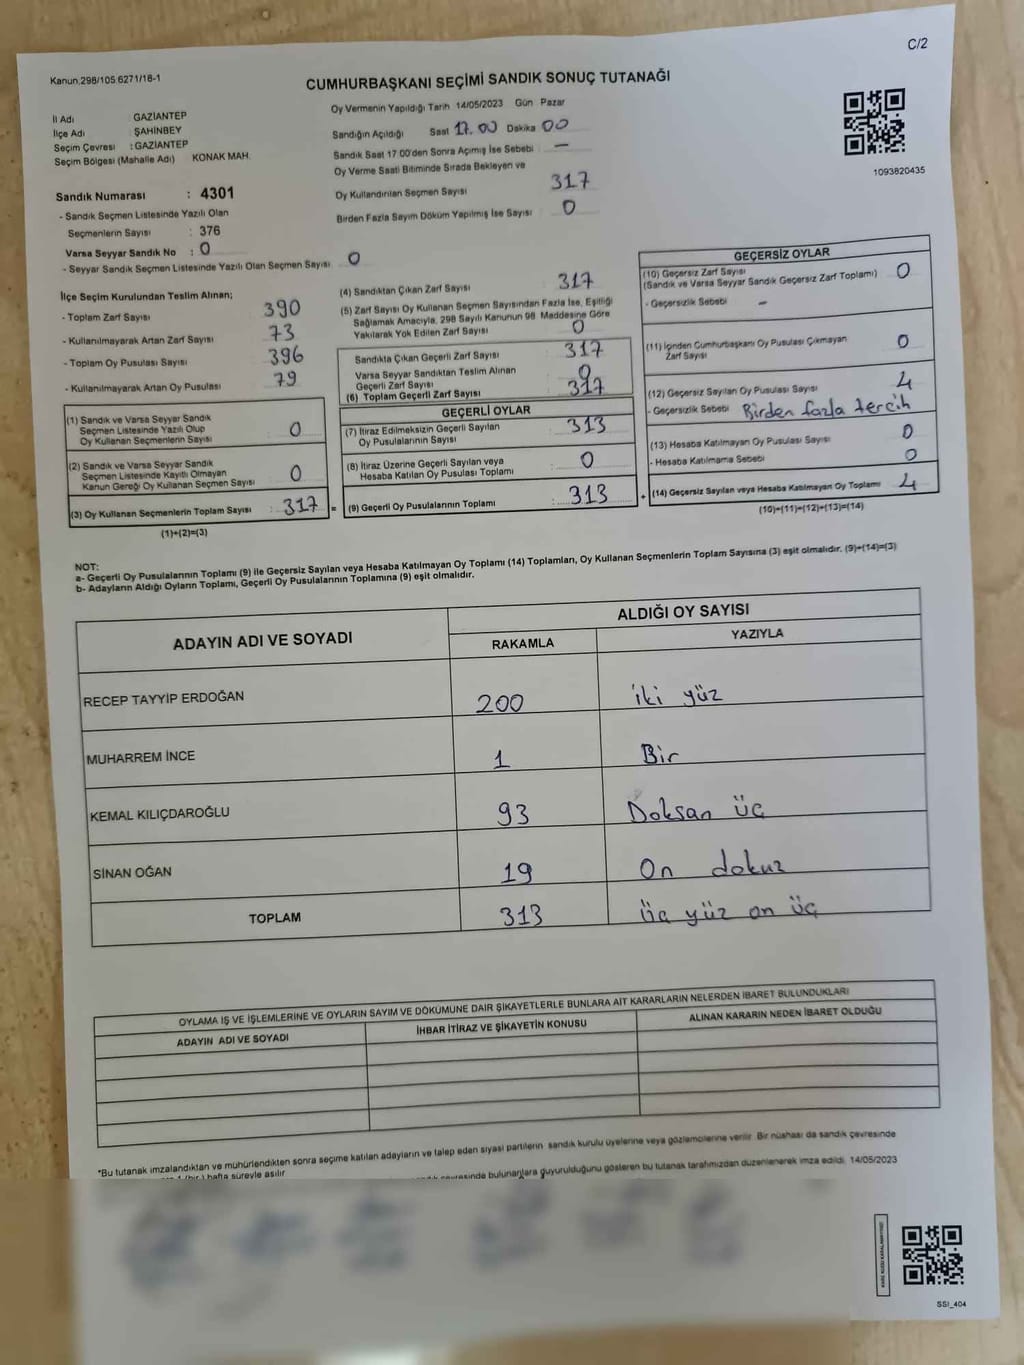 C/2
Kanun.298/105.6271/18-1
CUMHURBAŞKANI SEÇİMİ SANDIK SONUÇ TUTANAĞI
İl Adı : GAZİANTEP
İlçe Adı : ŞAHİNBEY
Seçim Çevresi : GAZİANTEP
Seçim Bölgesi (Mahalle Adı) KONAK MAH.
Sandık Numarası : 4301
- Sandık Seçmen Listesinde Yazılı Olan
Seçmenlerin Sayısı : 376
Varsa Seyyar Sandık No : 0
- Seyyar Sandık Seçmen Listesinde Yazılı Olan Seçmen Sayısı 0
Oy Vermenin Yapıldığı Tarih 14/05/2023 Gün Pazar
Sandığın Açıldığı Saat 17.00 Dakika 00
Sandık Saat 17:00'den Sonra Açımış İse Sebebi : —
Oy Verme Saati Bitiminde Sırada Bekleyen ve
Oy Kullandırılan Seçmen Sayısı 317
Birden Fazla Sayım Döküm Yapılmış İse Sayısı 0
1093820435
İlçe Seçim Kurulundan Teslim Alınan;
- Toplam Zarf Sayısı 390
- Kullanılmayarak Artan Zarf Sayısı 73
- Toplam Oy Pusulası Sayısı 396
- Kullanılmayarak Artan Oy Pusulası 79
(1) Sandık ve Varsa Seyyar Sandık
Seçmen Listesinde Yazılı Olup
Oy Kullanan Seçmenlerin Sayısı : 0
(2) Sandık ve Varsa Seyyar Sandık
Seçmen Listesinde Kayıtlı Olmayan
Kanun Gereği Oy Kullanan Seçmen Sayısı : 0
(3) Oy Kullanan Seçmenlerin Toplam Sayısı : 317 =
(1)+(2)=(3)
(4) Sandıktan Çıkan Zarf Sayısı 317
(5) Zarf Sayısı Oy Kullanan Seçmen Sayısından Fazla İse, Eşitliği
Sağlamak Amacıyla, 298 Sayılı Kanunun 98. Maddesine Göre
Yakılarak Yok Edilen Zarf Sayısı 0
Sandıkta Çıkan Geçerli Zarf Sayısı 317
Varsa Seyyar Sandıktan Teslim Alınan
Geçerli Zarf Sayısı 0
(6) Toplam Geçerli Zarf Sayısı 317
GEÇERLİ OYLAR
(7) İtiraz Edilmeksizin Geçerli Sayılan
Oy Pusulalarının Sayısı : 313
(8) İtiraz Üzerine Geçerli Sayılan veya
Hesaba Katılan Oy Pusulası Toplamı : 0
(9) Geçerli Oy Pusulalarının Toplamı : 313 +
GEÇERSİZ OYLAR
(10) Geçersiz Zarf Sayısı
(Sandık ve Varsa Seyyar Sandık Geçersiz Zarf Toplamı) 0
- Geçersizlik Sebebi –
(11) İçinden Cumhurbaşkanı Oy Pusulası Çıkmayan
Zarf Sayısı 0
(12) Geçersiz Sayılan Oy Pusulası Sayısı 4
- Geçersizlik Sebebi Birden fazla tercih
(13) Hesaba Katılmayan Oy Pusulası Sayısı 0
- Hesaba Katılmama Sebebi 0
(14) Geçersiz Sayılan veya Hesaba Katılmayan Oy Toplamı 4
(10)+(11)+(12)+(13)=(14)
NOT:
a- Geçerli Oy Pusulalarının Toplamı (9) ile Geçersiz Sayılan veya Hesaba Katılmayan Oy Toplamı (14) Toplamları, Oy Kullanan Seçmenlerin Toplam Sayısına (3) eşit olmalıdır. (9)+(14)=(3)
b- Adayların Aldığı Oyların Toplamı, Geçerli Oy Pusulalarının Toplamına (9) eşit olmalıdır.
ADAYIN ADI VE SOYADI
ALDIĞI OY SAYISI
RAKAMLA YAZIYLA
RECEP TAYYİP ERDOĞAN 200 iki yüz
MUHARREM İNCE 1 Bir
KEMAL KILIÇDAROĞLU 93 Doksan üç
SİNAN OĞAN 19 On dokuz
TOPLAM 313 Üç yüz on üç
OYLAMA İŞ VE İŞLEMLERİNE VE OYLARIN SAYIM VE DÖKÜMÜNE DAİR ŞİKAYETLERLE BUNLARA AİT KARARLARIN NELERDEN İBARET BULUNDUKLARI
ADAYIN ADI VE SOYADI İHBAR İTİRAZ VE ŞİKAYETİN KONUSU ALINAN KARARIN NEDEN İBARET OLDUĞU
*Bu tutanak imzalandıktan ve mühürlendikten sonra seçime katılan adayların ve talep eden siyasi partilerin sandık kurulu üyelerine veya gözlemcilerine verilir. Bir nüshası da sandık çevresinde
1 (bir) hafta süreyle asılır.
çevresinde bulunanlara duyurulduğunu gösteren bu tutanak tarafımızdan düzenlenerek imza edildi. 14/05/2023
SSI_404